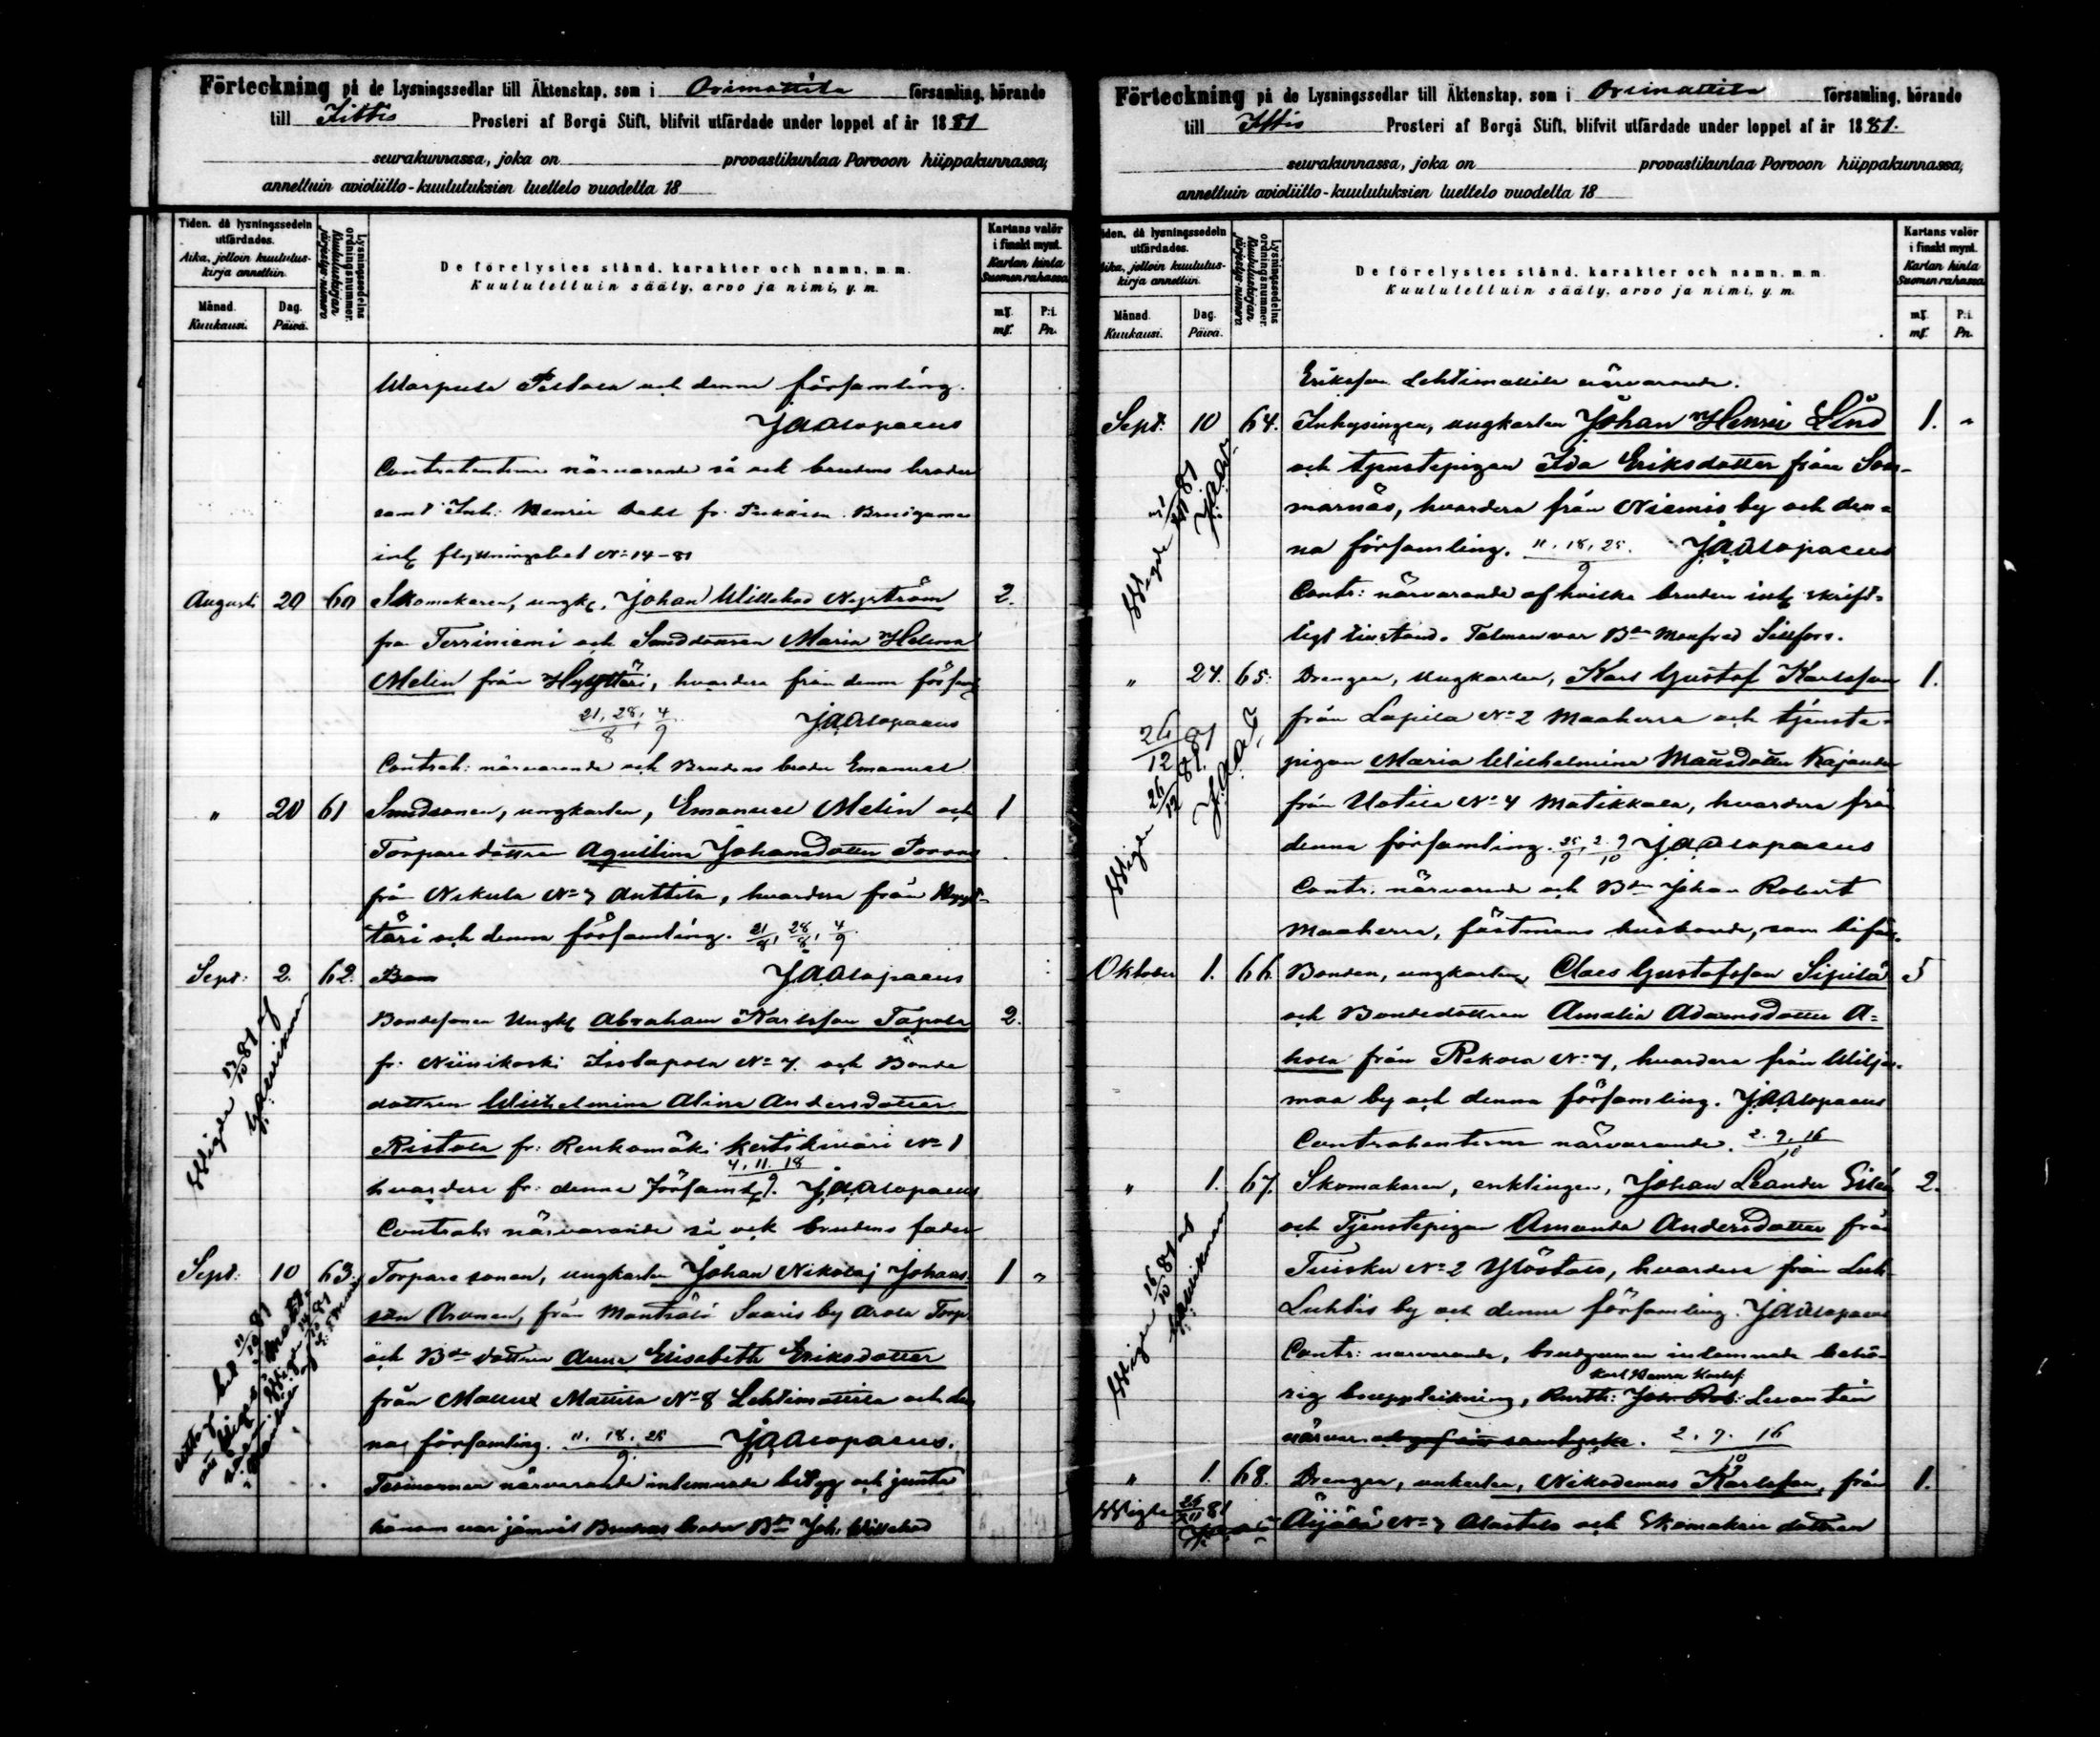 Förteckning på de Lysningssedlar till Äktenskap, som i Orimattila församling, hörande
till Jittis Prosteri af Borgå Stift, blifvit utfärdade under loppet af år 1881
seurakunnassa, joka on provastikuntaa Porvoon hiippakunnassa,
annettuin avioliitto-kuulutuksien luettelo vuodelta 18
Tiden, då lysningssedeln utfärdades.
Aika, jolloin kuulutuskirja annettiin.
Månad. Kuukausi.
Dag. Päivä.
Lysningssedelns ordningsnummer.
Kuulutuskirjan järjestys-numero
De förelystes stånd, karakter och namn, m. m.
Kuulutelluin sääty, arvo ja nimi, y. m.
Kartans valör i finskt mynt.
Kartan hinta Suomen rahassa
mk. P:i.
mk. Pn.
och denna församling.
JAAlopaeus
Contrahenterna närvarande så ock brudens broder
samt Inh. Henric Dahl fr. Brudgummen
inl flyttningsbet No 14-81
Augusti 20 60 Skomakaren, ungk. Johan Willehad Nyström 2.
fr. Terriniemi och Smeddottren Maria Helena
Melin från Hyyttäri, hvardera från denna församl
21, 28, 4 JAAlopaeus
8 9
Contrah: närvarande och Brudens broder Emanuel
" 20 61 Smedsonen, ungkarlen, Emanuel Melin och 1
Torpare dottren Aquilina Johansdotter
från Nikula No 7 Anttila, hvardera från Hyyt-
täri och denna församling. 21/8, 28/8, 4/9
Sept: 2. 62. JAAlopaeus
Bondesonen Ungk Abraham Karlsson Tapola 2.
fr. Niinikoski Isotapola No 7. och Bonde
dottren Wilhelmina Alina Andersdotter
Ristola fr. Renkomäki No 1
4, 11. 18
9
hvardera fr. denna församl. JAAlopaeus
Contrah: närvarande så ock brudens fader
Wigde 81 af
Sept: 10 63. Torpare sonen, ungkarlen Johan Nikolaj Johans- 1 "
son Aronen, från Mäntsälä Saaris by Arola Torp
och Bde dottren Anna Elisabeth Eriksdotter
från Mattila No 8 Lehtimattila och den-
na församling. 11. 18. 25 JAAlopaeus.
9
närvarande inlemnade betyg och jemte
honom var jämväl Brudens broder Bde Joh. Willehad
Förteckning på de Lysningssedlar till Äktenskap, som i Orimattila församling, hörande
till Jittis Prosteri af Borgå Stift, blifvit utfärdade under loppet af år 1881.
seurakunnassa, joka on provastikuntaa Porvoon hiippakunnassa,
annettuin avioliitto-kuulutuksien luettelo vuodelta 18
Tiden, då lysningssedeln utfärdades.
Aika, jolloin kuulutuskirja annettiin.
Månad. Kuukausi.
Dag. Päivä.
Lysningssedelns ordningsnummer.
Kuulutuskirjan järjestys-numero
De förelystes stånd, karakter och namn, m. m.
Kuulutelluin sääty, arvo ja nimi, y. m.
Kartans valör i finskt mynt.
Kartan hinta Suomen rahassa
mk. P:i.
mk. Pn.
Eriksson Lehtimattila närvarande.
Sept. 10 64. Inhysingen, ungkarlen Johan Henric Lind 1. "
och tjenstepigan Ida Eriksdotter från Som-
marnäs, hvardera från Niemis by och den-
na församling. 11. 18, 25. JAAlopaeus
9
Contr: närvarande af hvilka bruden inl skrift-
ligt tilstånd. Talman var Bde Manfred Sillfors.
" 24. 65. Drengen, Ungkarlen, Karl Gustaf Karlsson 1.
från Lapila No 2 Maaherra och tjenste-
pigan Maria Wilhelmina Mattsdotter Kajander
från Uotila No 4 Matikkala, hvardera från
denna församling. 25/9, 2. 9/10 JAAlopaeus
Contr: närvarande och Bden Johan Robert
Maaherra, fästmans husbonde, som biföll.
Wigde 26/12 81.
Oktober 1. 66. Bonden, ungkarlen, Claes Gustafsson Sipilä 5
och Bondedottren Amalia Adamsdotter A-
hola från Rekola No 7, hvardera från Wilja-
maa by och denna församling. JAAlopaeus
Contrahenterna närvarande. 2. 9. 16
10
" 1. 67. Skomakaren, enklingen, Johan Leander Gilén 2.
och Tjenstepigan Amanda Andersdotter från
Tuisku No 2 Ylöstalo, hvardera från Luh-
Luhtis by och denna församling. JAAlopaeus
Contr: närvarande, brudgummen inlemnade behö-
rig bouppteckning,
närvar. 2. 9. 16
10
Wigde 16/10 81 af
" 1. 68. Drengen, unkarlen, Nikodemus Karlsson, från 1.
Wigde 26/11 81 Äijälä No 7 Alastalo och Skomakare dottren